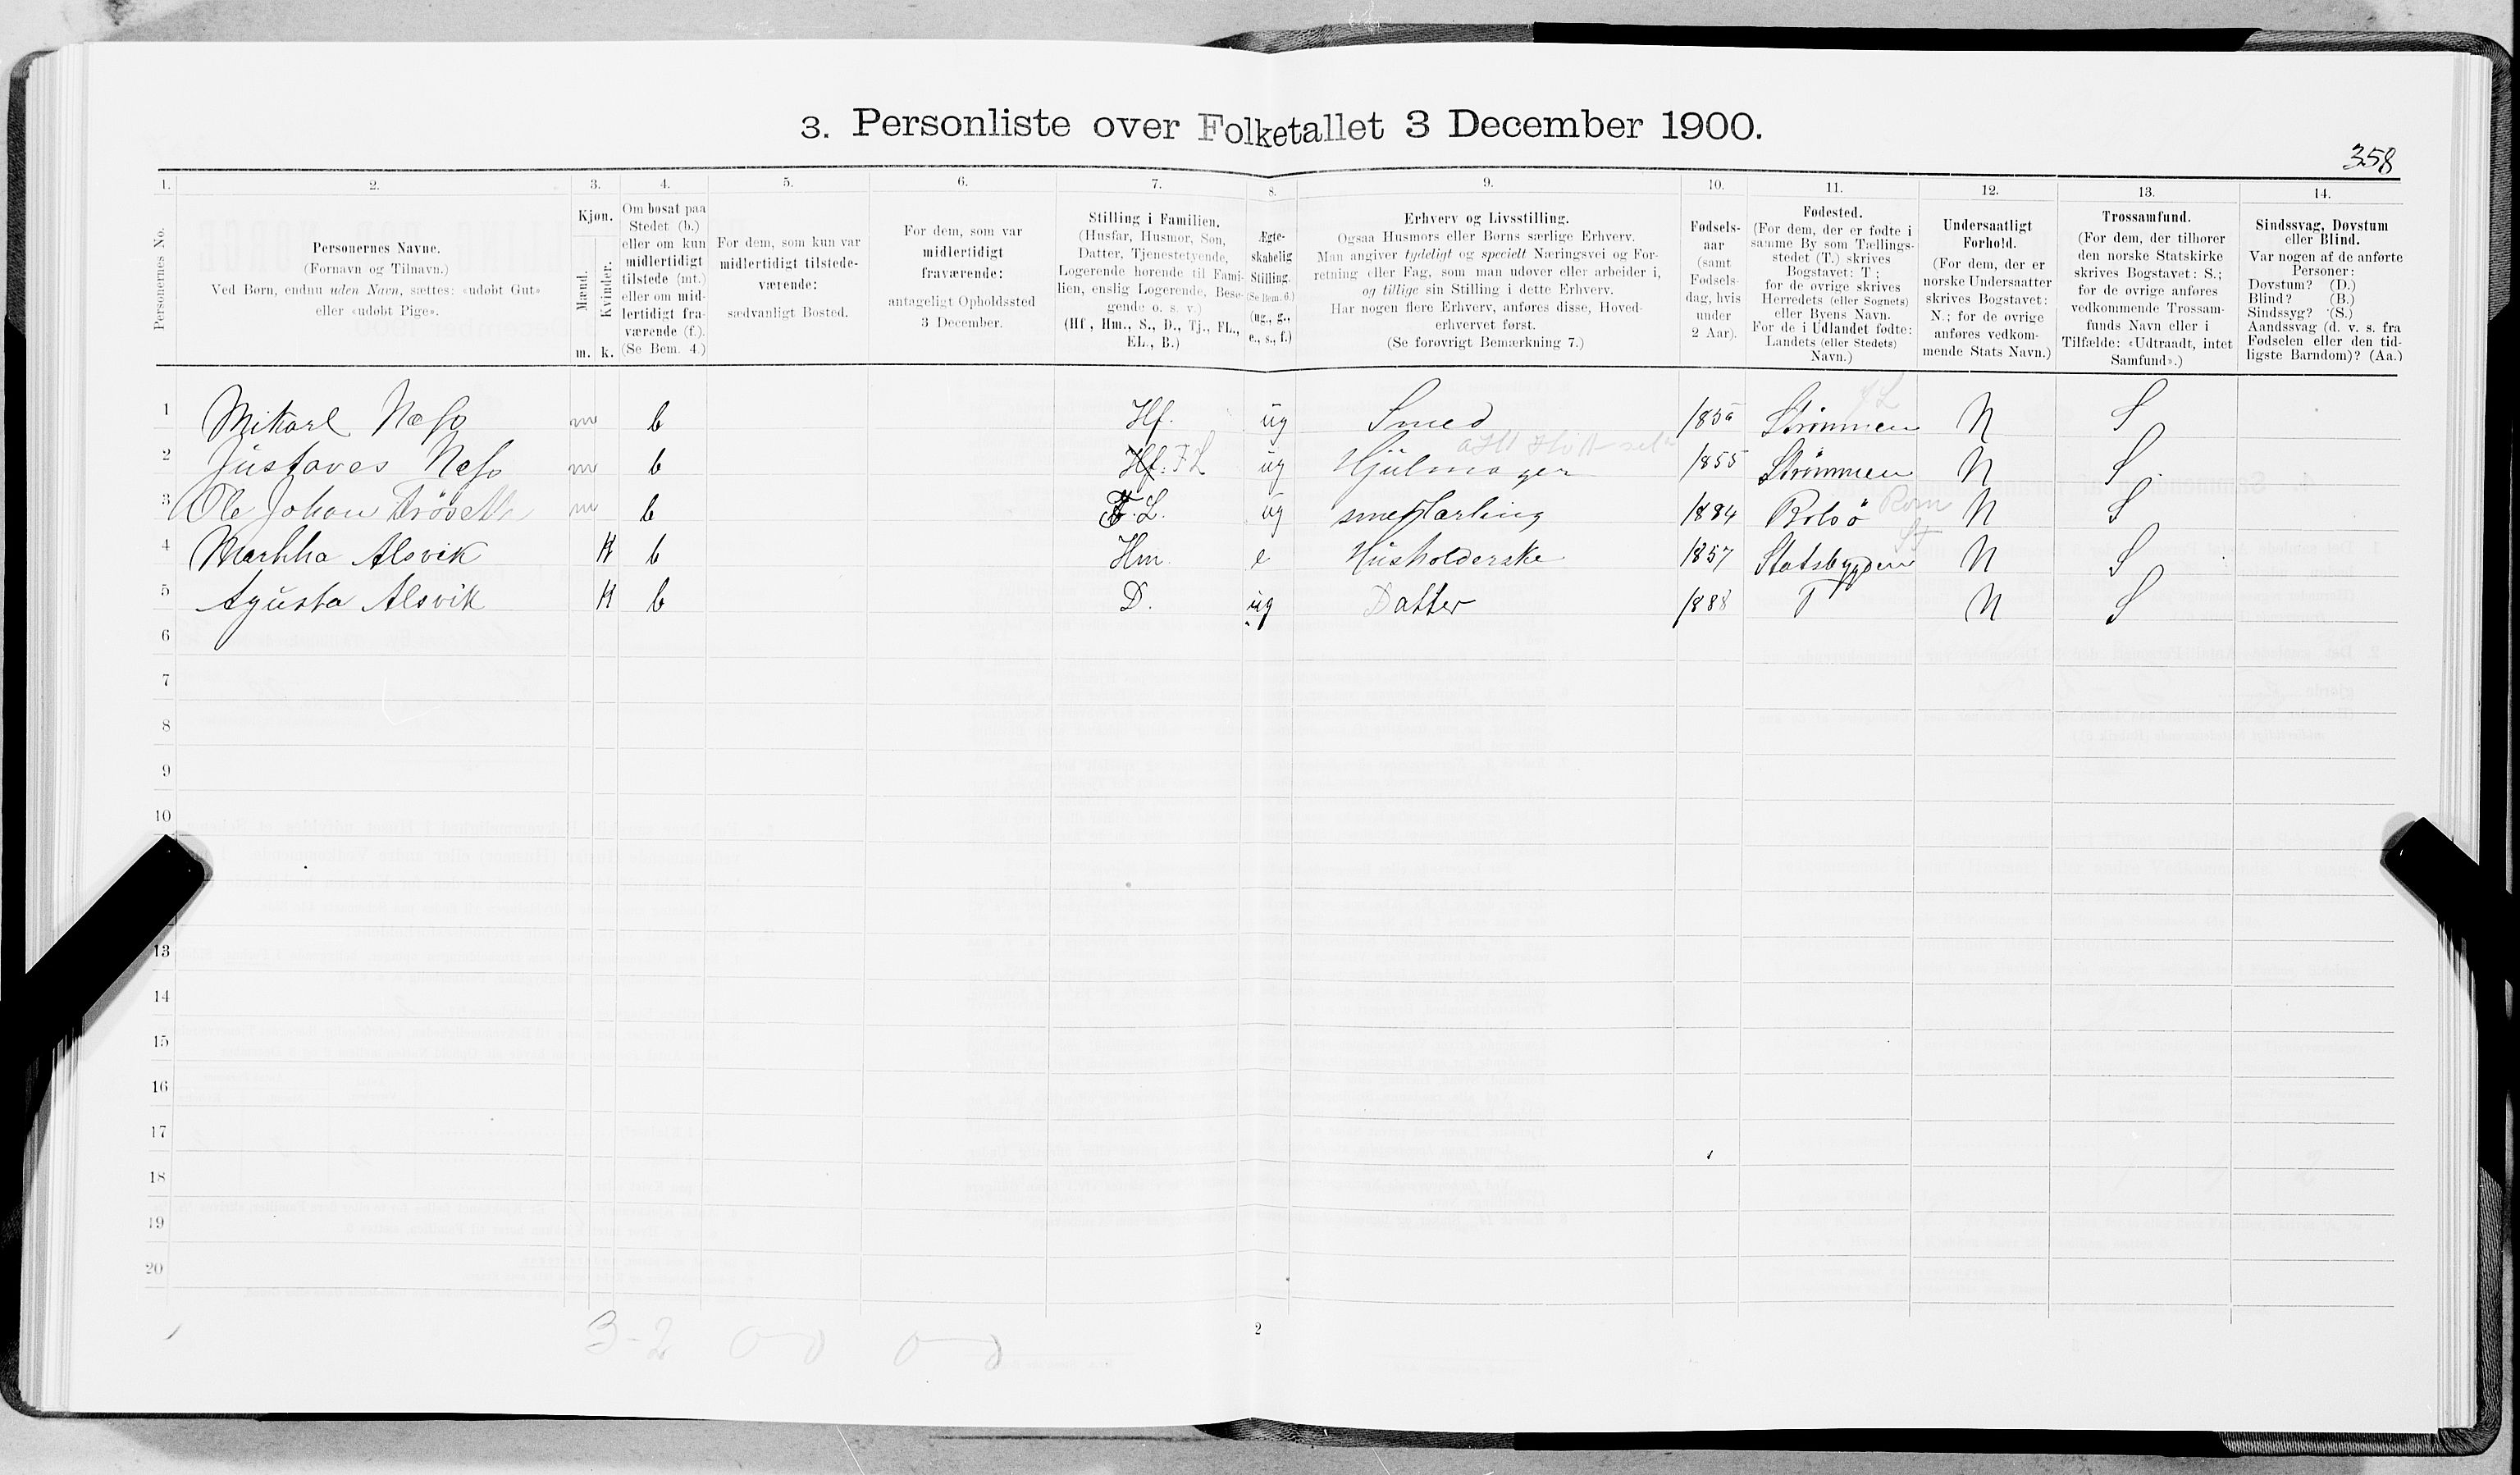 3. Personliste over Folketallet 3 December 1900.
358
1. 2. 3. 4. 5. 6. 7. 8. 9. 10. 11. 12. 13. 14.
Personernes No.
Personernes Navne.
(Fornavn og Tilnavn.)
Ved Børn, endnu uden Navn, sættes: «udøbt Gut»
eller «udøbt Pige».
Kjøn.
Mænd.
Kvinder.
m. k.
Om bosat paa
Stedet (b.)
eller om kun
midlertidigt
tilstede (mt.)
eller om mid-
lertidigt fra-
værende (f.).
(Se Bem. 4.)
For dem, som kun var
midlertidigt tilstede-
værende:
sædvanligt Bosted.
For dem, som var
midlertidigt
fraværende:
antageligt Opholdssted
3 December.
Stilling i Familien.
(Husfar, Husmor, Søn,
Datter, Tjenestetyende,
Logerende hørende til Fami-
lien, enslig Logerende, Besø-
gende o. s. v.)
(Hf., Hm., S., D., Tj., FL.,
EL., B.)
Ægte-
skabelig
Stilling.
(Se Bem. 6.)
(ug., g.,
e., s., f.)
Erhverv og Livsstilling.
Ogsaa Husmors eller Børns særlige Erhverv.
Man angiver tydeligt og specielt Næringsvei og For-
retning eller Fag, som man udøver eller arbeider i,
og tillige sin Stilling i dette Erhverv.
Har nogen flere Erhverv, anføres disse, Hoved-
erhvervet først.
(Se forøvrigt Bemærkning 7.)
Fødsels-
aar
(samt
Fødsels-
dag, hvis
under
2 Aar).
Fødested.
(For dem, der er fødte i
samme By som Tællings-
stedet (T.) skrives
Bogstavet: T;
for de øvrige skrives
Herredets (eller Sognets)
eller Byens Navn.
For de i Udlandet fødte:
Landets (eller Stedets)
Navn.)
Undersaatligt
Forhold.
(For dem, der er
norske Undersaatter
skrives Bogstavet:
N.; for de øvrige
anføres vedkom-
mende Stats Navn.)
Trossamfund.
(For dem, der tilhører
den norske Statskirke
skrives Bogstavet: S.;
for de øvrige anføres
vedkommende Trossam-
funds Navn eller i
Tilfælde: «Udtraadt, intet
Samfund».)
Sindssvag, Døvstum
eller Blind.
Var nogen af de anførte
Personer:
Døvstum? (D.)
Blind? (B.)
Sindssyg? (S.)
Aandssvag (d. v. s. fra
Fødselen eller den tid-
ligste Barndom)? (Aa.)
1 Mikael Næss m b Hf. ug Smed Strømmen N S
2 Justaves Næss m b Hf. FL ug Hjulmager 1855 Strømmen N S
3 Ole Johan m b F.L. ug smedlærling 1884 Bolsö Rom N S
4 Marhha Alsvik K b Hm. e Husholderske 1857 Statsbygden ST N S
5 Agusta Alsvik K b D. ug Datter 1888 T N S
6
7
8
9
10
13
14
15
16
17
18
19
20
3-2 0-0 0-0
2